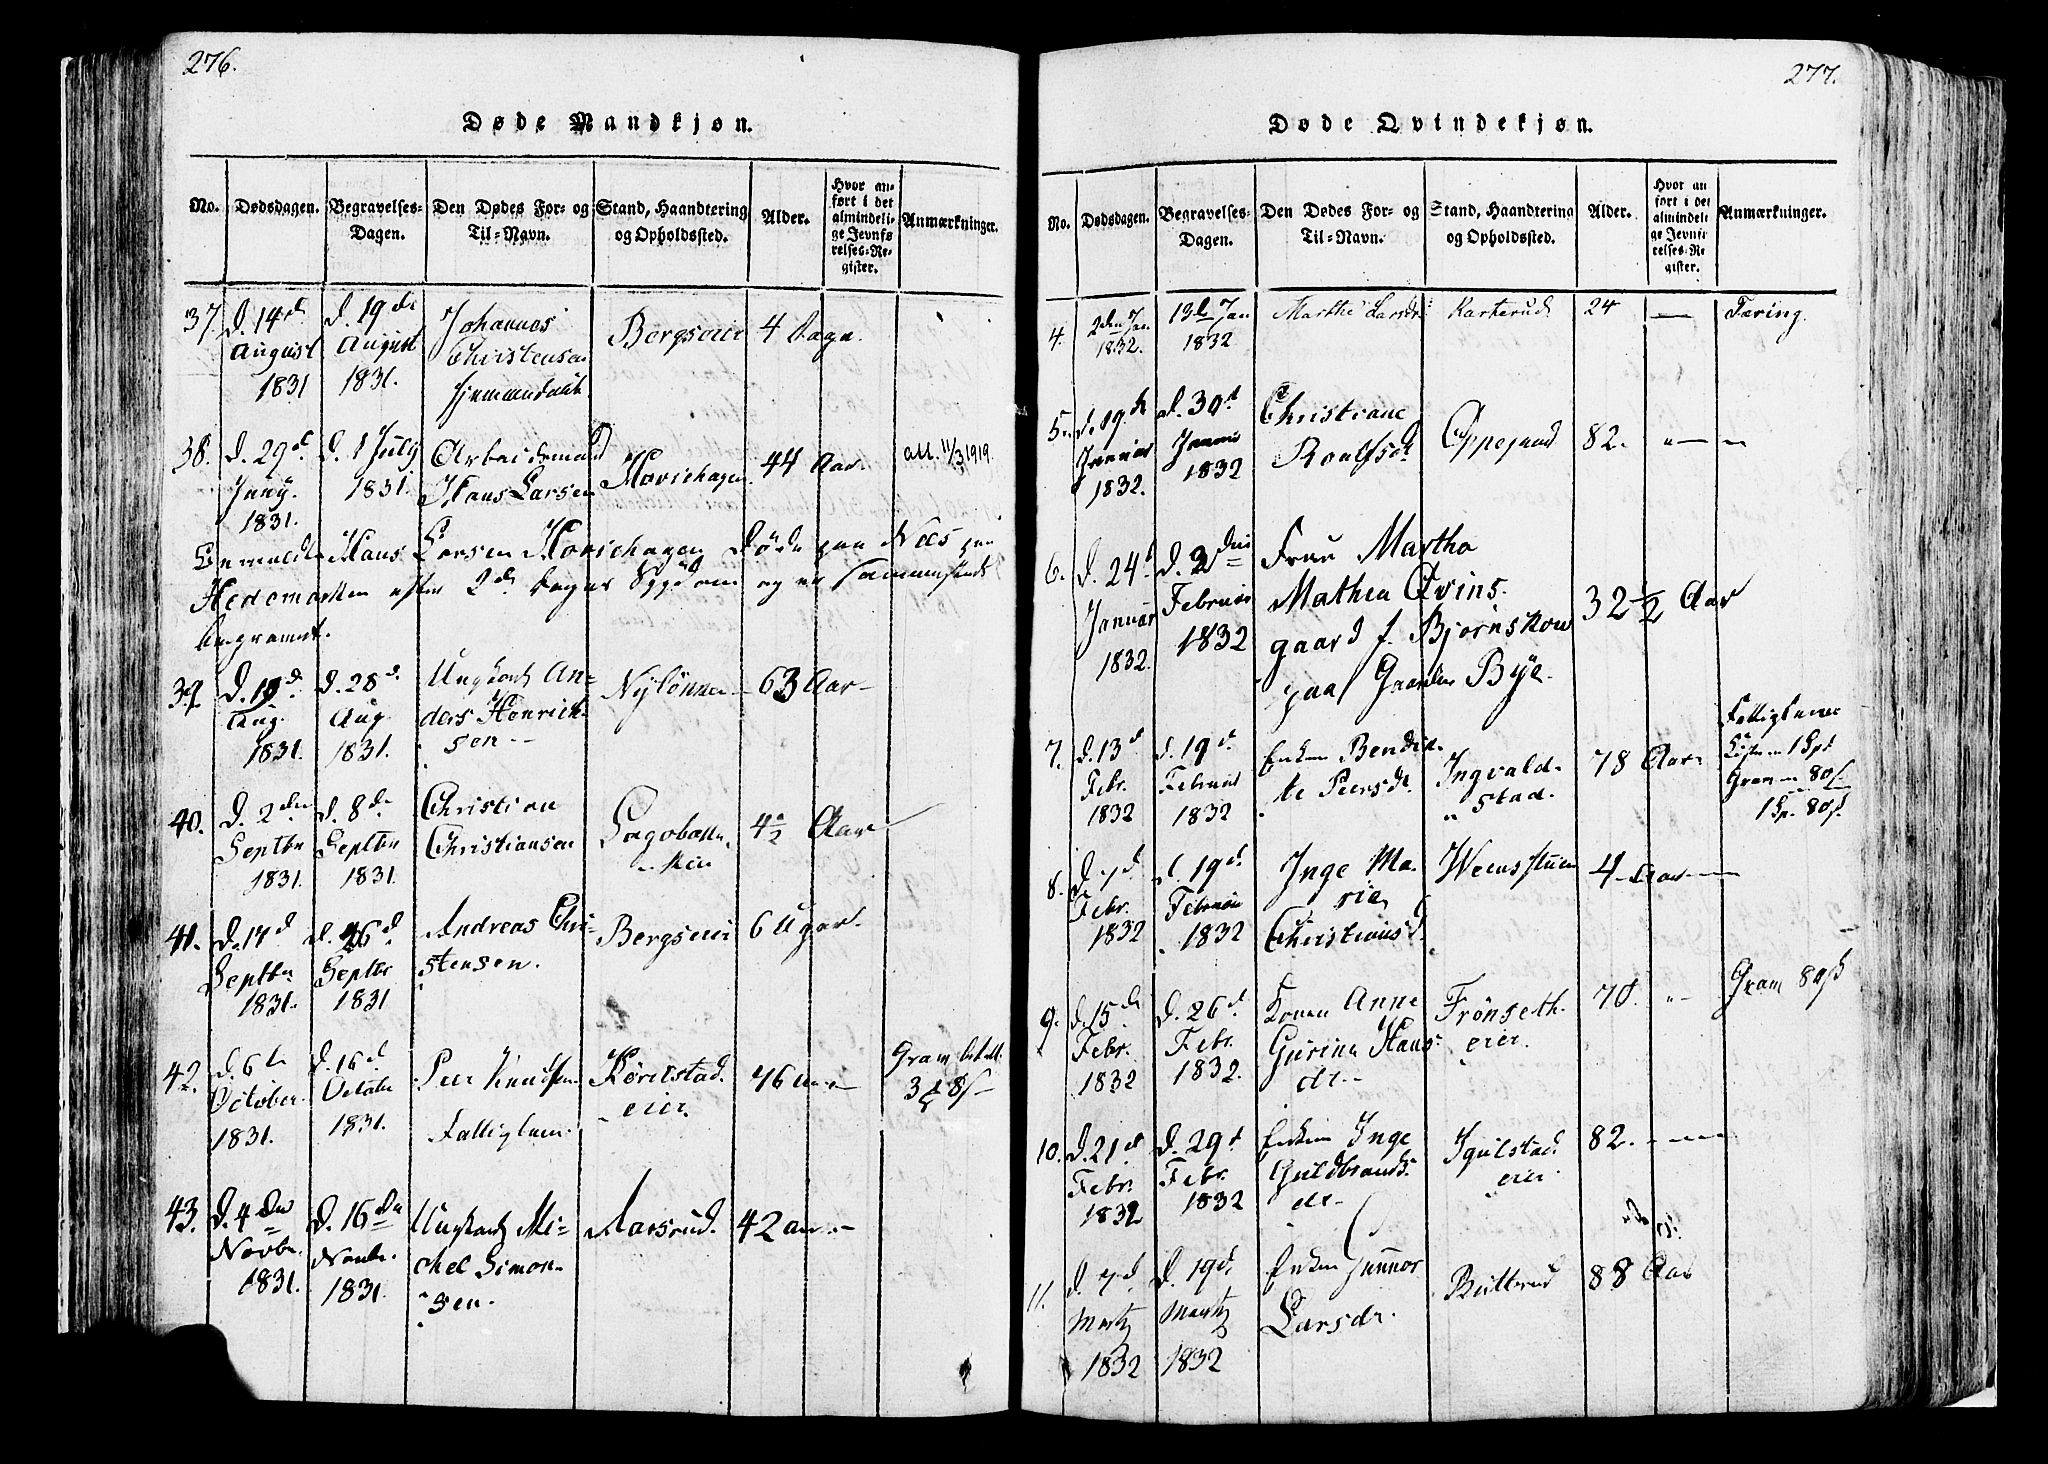 276.
Døde Mandkjøn.
No. Dødsdagen. Begravelses-Dagen. Den Dødes For- og Til-Navn. Stand, Haandtering og Opholdssted. Alder. Hvor anført i det almindelige Jevnførelses-Register. Anmærkninger.
37. d. 14de August 1831 d. 19de August 1831. Johannes Christensen Bergseier 4 Dage.
38. d. 29de Juny. 1831. d. 1 July 1831. Arbeidsmand Hans Larsen Hovsehagen 44 Aar. att. 11/3 1919.
Hans Larsen Hovsehagen Døde paa Nees paa
Hedemarken efter 2de Dages Sygdom og er sammesteds
begravet.
39. D. 19de Aug. 1831. d. 28de Aug. 1831. Ungkarl Anders Henriksen Nylönna 63 Aar
40. d. 2den Septbr 1831. d. 8de Septbr 1831. Christian Christiansen 4½ Aar
41. d. 17de Septbr. 1831. d. 26de Septbr 1831 Andreas Christensen. Bergseier 6 Uger.
42. d. 6te October. 1831. d. 16de Octobr 1831. Peer Knudsen Fattiglem. eier. 76
43. D. 4de Novbr. 1831. D. 16de Novbr. 1831. Ungkarl Michel Simonsen. Aarsrud. 42 aar
277.
Døde Qvindekjøn.
No. Dødsdagen. Begravelses-Dagen. Den Dødes For- og Til-Navn. Stand, Haandtering og Opholdssted. Alder. Hvor anført i det almindelige Jevnførelses-Register. Anmærkninger.
4. 2den Jan 1832. 13de Jan 1832 Marthe Larsdr Karterud 24 — Tæring.
5. d. 19de Januar 1832. d. 30te Januar 1832 Christiane Roalfsdr Oppesand 82.
6. d. 24de Januar 1832. d. 2den Februar 1832 Frue Martha
Mathea Qvinsgaard f. Bjørnskou 32½ Aar
paa Gaarden Bye.
7. d. 13de Febr. 1832 d. 19de Februar 1832 Enken Bendicte Peersdr. Ingvaldstad. 78 Aar Fattiglem
1 Sp. 80 s.
8. D. 7de Febr. 1832 d. 19de Februar 1832 Inge Marie Christiansd. 4 Aar
9. d. 15de Febr. 1832 d. 26de Febr. 1832. Konen Anne Gurine Hansdr. Frönsetheier. 70. Grav 80 s
10. D. 21de Febr. 1832 D. 29de Febr. 1832 Enken Inge Guldbrandsdr. Igulstadeier. 82.
11. d. 7de Martz 1832 D. 19de Martz 1832 Enken Gunnor Larsdr. Rutterud 88 Aar